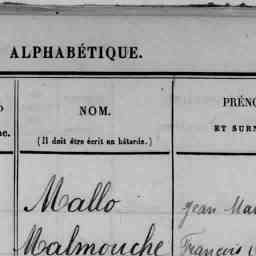 ALPHABÉTIQUE.
NOM.
(Il doit être écrit en bâtarde.)
PRÉNO
ET SURN
Mallo
Jean Ma
Malmouche
François